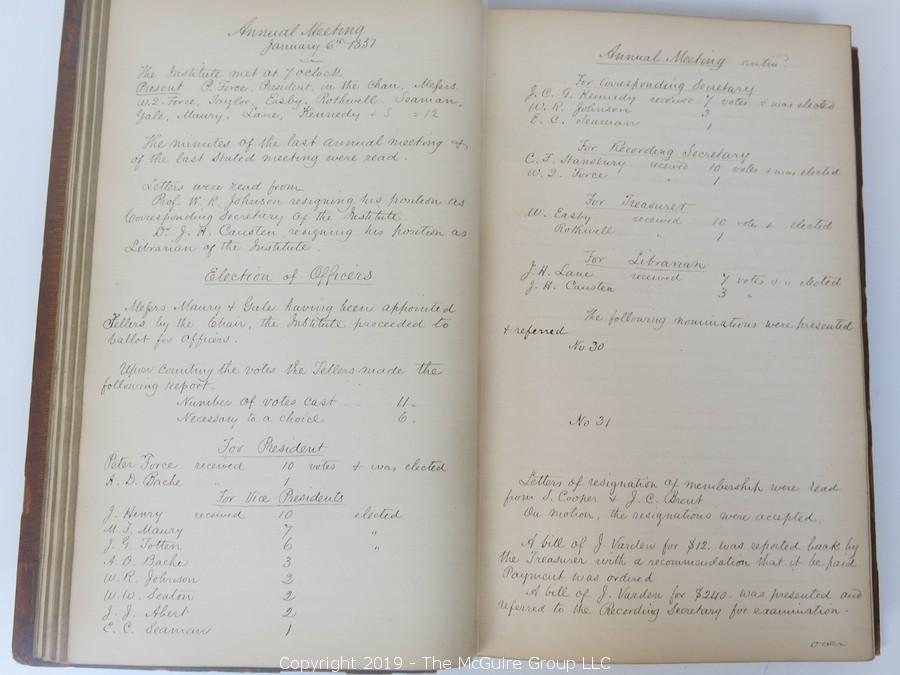 Annual Meeting
January 6th 1851
The Institute met at 7 oclock
Present P. Force, President, in the chair, Messrs.
W.Q. Force, Taylor, Easby, Rothwell, Seaman,
Gale, Maury, Lane, Kennedy + 3 = 12
The minutes of the last annual meeting &
of the last Stated meeting were read.
Letters were read from
Prof. W. R. Johnson resigning his position as
Corresponding Secretary of the Institute.
Dr. J. H. Causten resigning his position as
Librarian of the Institute.
Election of Officers
Messrs Maury & Gale having been appointed
Tellers by the Chair, the Institute proceeded to
ballot for Officers.
Upon counting the votes the Tellers made the
following report-
Number of votes cast 11-
Necessary to a choice 6.
For President
Peter Force received 10 votes & was elected
A. D. Bache " 1
For Vice Presidents
J. Henry received 10 elected
M. F. Maury 7 "
J. G. Totten 6 "
A. D. Bache 3
W. R. Johnson 2
W. W. Seaton 2
J. J. Abert 2
E. C. Seaman 1
Annual Meeting contin.
For Corresponding Secretary
J. C. G. Kennedy received 7 votes & was elected
W. R. Johnson 3
E. C. Seaman 1
For Recording Secretary
C. F. Stansbury received 10 votes & was elected
W. Q. Force " 1
For Treasurer
W. Easby received 10 votes & elected
Rothwell " 1
For Librarian
J. H. Lane received 7 votes & " elected
J. H. Causten 3 "
The following nominations were presented
& referred
No 30
No 31
Letters of resignation of membership were read
from S. Cooper & J. C. Brent
On motion, the resignations were accepted.
A bill of J. Varden for $12. was reported back by
the Treasurer with a recommendation that it be paid.
Payment was ordered
A bill of J. Varden for $240. was presented and
referred to the Recording Secretary for examination.
over
Copyright 2019 - The McGuire Group LLC